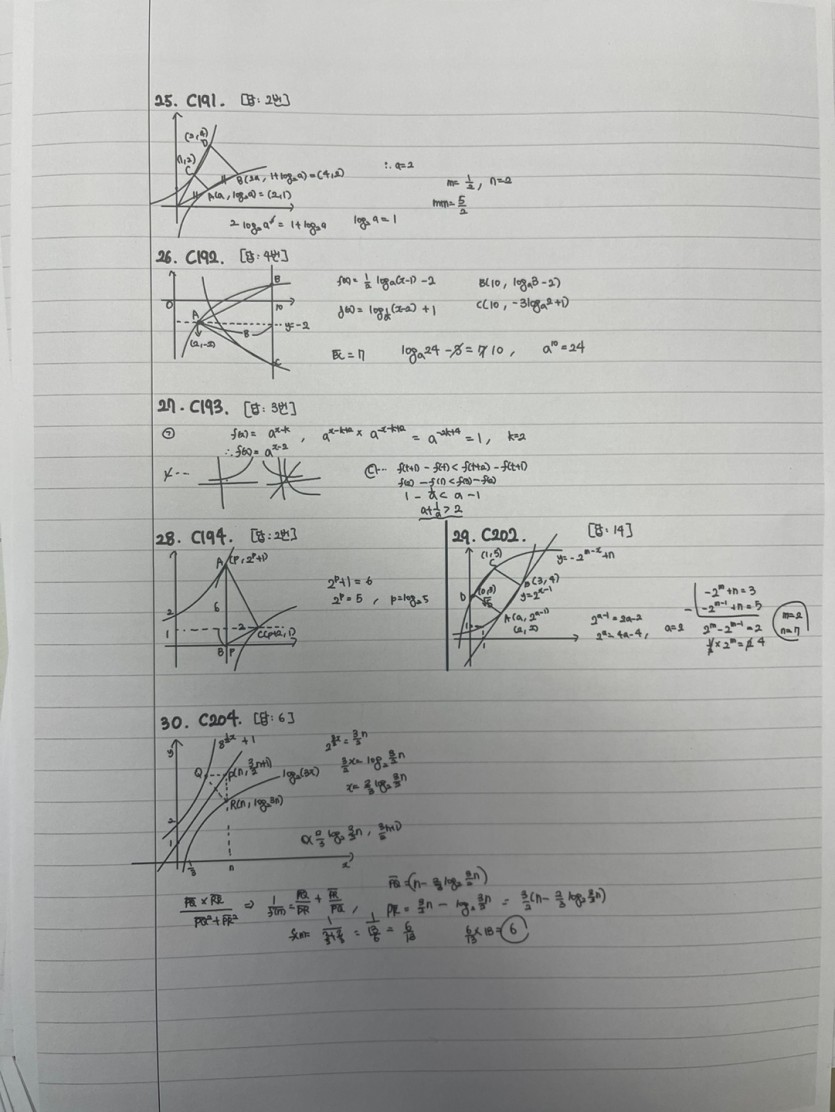 25. C191. [답: 2번]
(2, 4)
D
(1, 2)
C
B(2a, 1+log₂a)=(4, 2)
A(a, log₂a)=(2, 1)
∴ a=2
m=1/2, n=2
m+n=5/2
2log₂a = 1+log₂a    log₂a=1
26. C192. [답: 4번]
B
O
10
A
y=-2
8
(2, -2)
C
f(x)= 1/2 logₐ(x-1) -2
B(10, logₐ3 -2)
C(10, -3logₐ2+1)
BC=7    logₐ24 -3 = 7 10,    a¹⁰=24
27. C193. [답: 3번]
㉠    f(x)= a^(x-k),    a^(x-k+2) × a^(-x-k+2) = a^(-2k+4) = 1, k=2
∴ f(x)= a^(x-2)
㉢... f(t+1) - f(t) < f(t+2) - f(t+1)
f(2) - f(1) < f(3) - f(2)
1 - 1/a < a - 1
a+1/a > 2
28. C194. [답: 2번]
A(p, 2^p+1)
2
6
1
2
C(p+2, 1)
B p
2^p+1 = 6
2^p = 5, p=log₂5
29. C202. [답: 14]
(1, 5)
C
y=-2^(m-x)+n
B(3, 4)
D (0, 3)
y=2^(x-1)
A(a, 2^(a-1))
(2, 2)
1
2^(a-1) = 2a-2
2^a = 4a-4, a=2
-2^m+n=3
-2^(m-1)+n=5
2^m-2^(m-1)=2
1/2×2^m=2 4
m=2
n=7
30. C204. [답: 6]
8^(1/2 x)+1
y
Q
P(n, 3/2n+1)
log₂(3x)
R(n, log₂3n)
2
1
1/3
n
x
2^(3/2 x) = 3/2 n
3/2 x = log₂ 3/2 n
x= 2/3 log₂ 3/2 n
Q(2/3 log₂ 3/2 n, 3/2n+1)
PQ=(n- 2/3 log₂ 3/2 n)
PQ×PR / PQ²+PR² ⇒ 1/f(n) = PQ/PR + PR/PQ,    PR = 3/2 n - log₂ 3/2 n = 3/2(n- 2/3 log₂ 3/2 n)
f(n)= 1/(2/3+3/2) = 1/(13/6) = 6/13    6/13×13=6